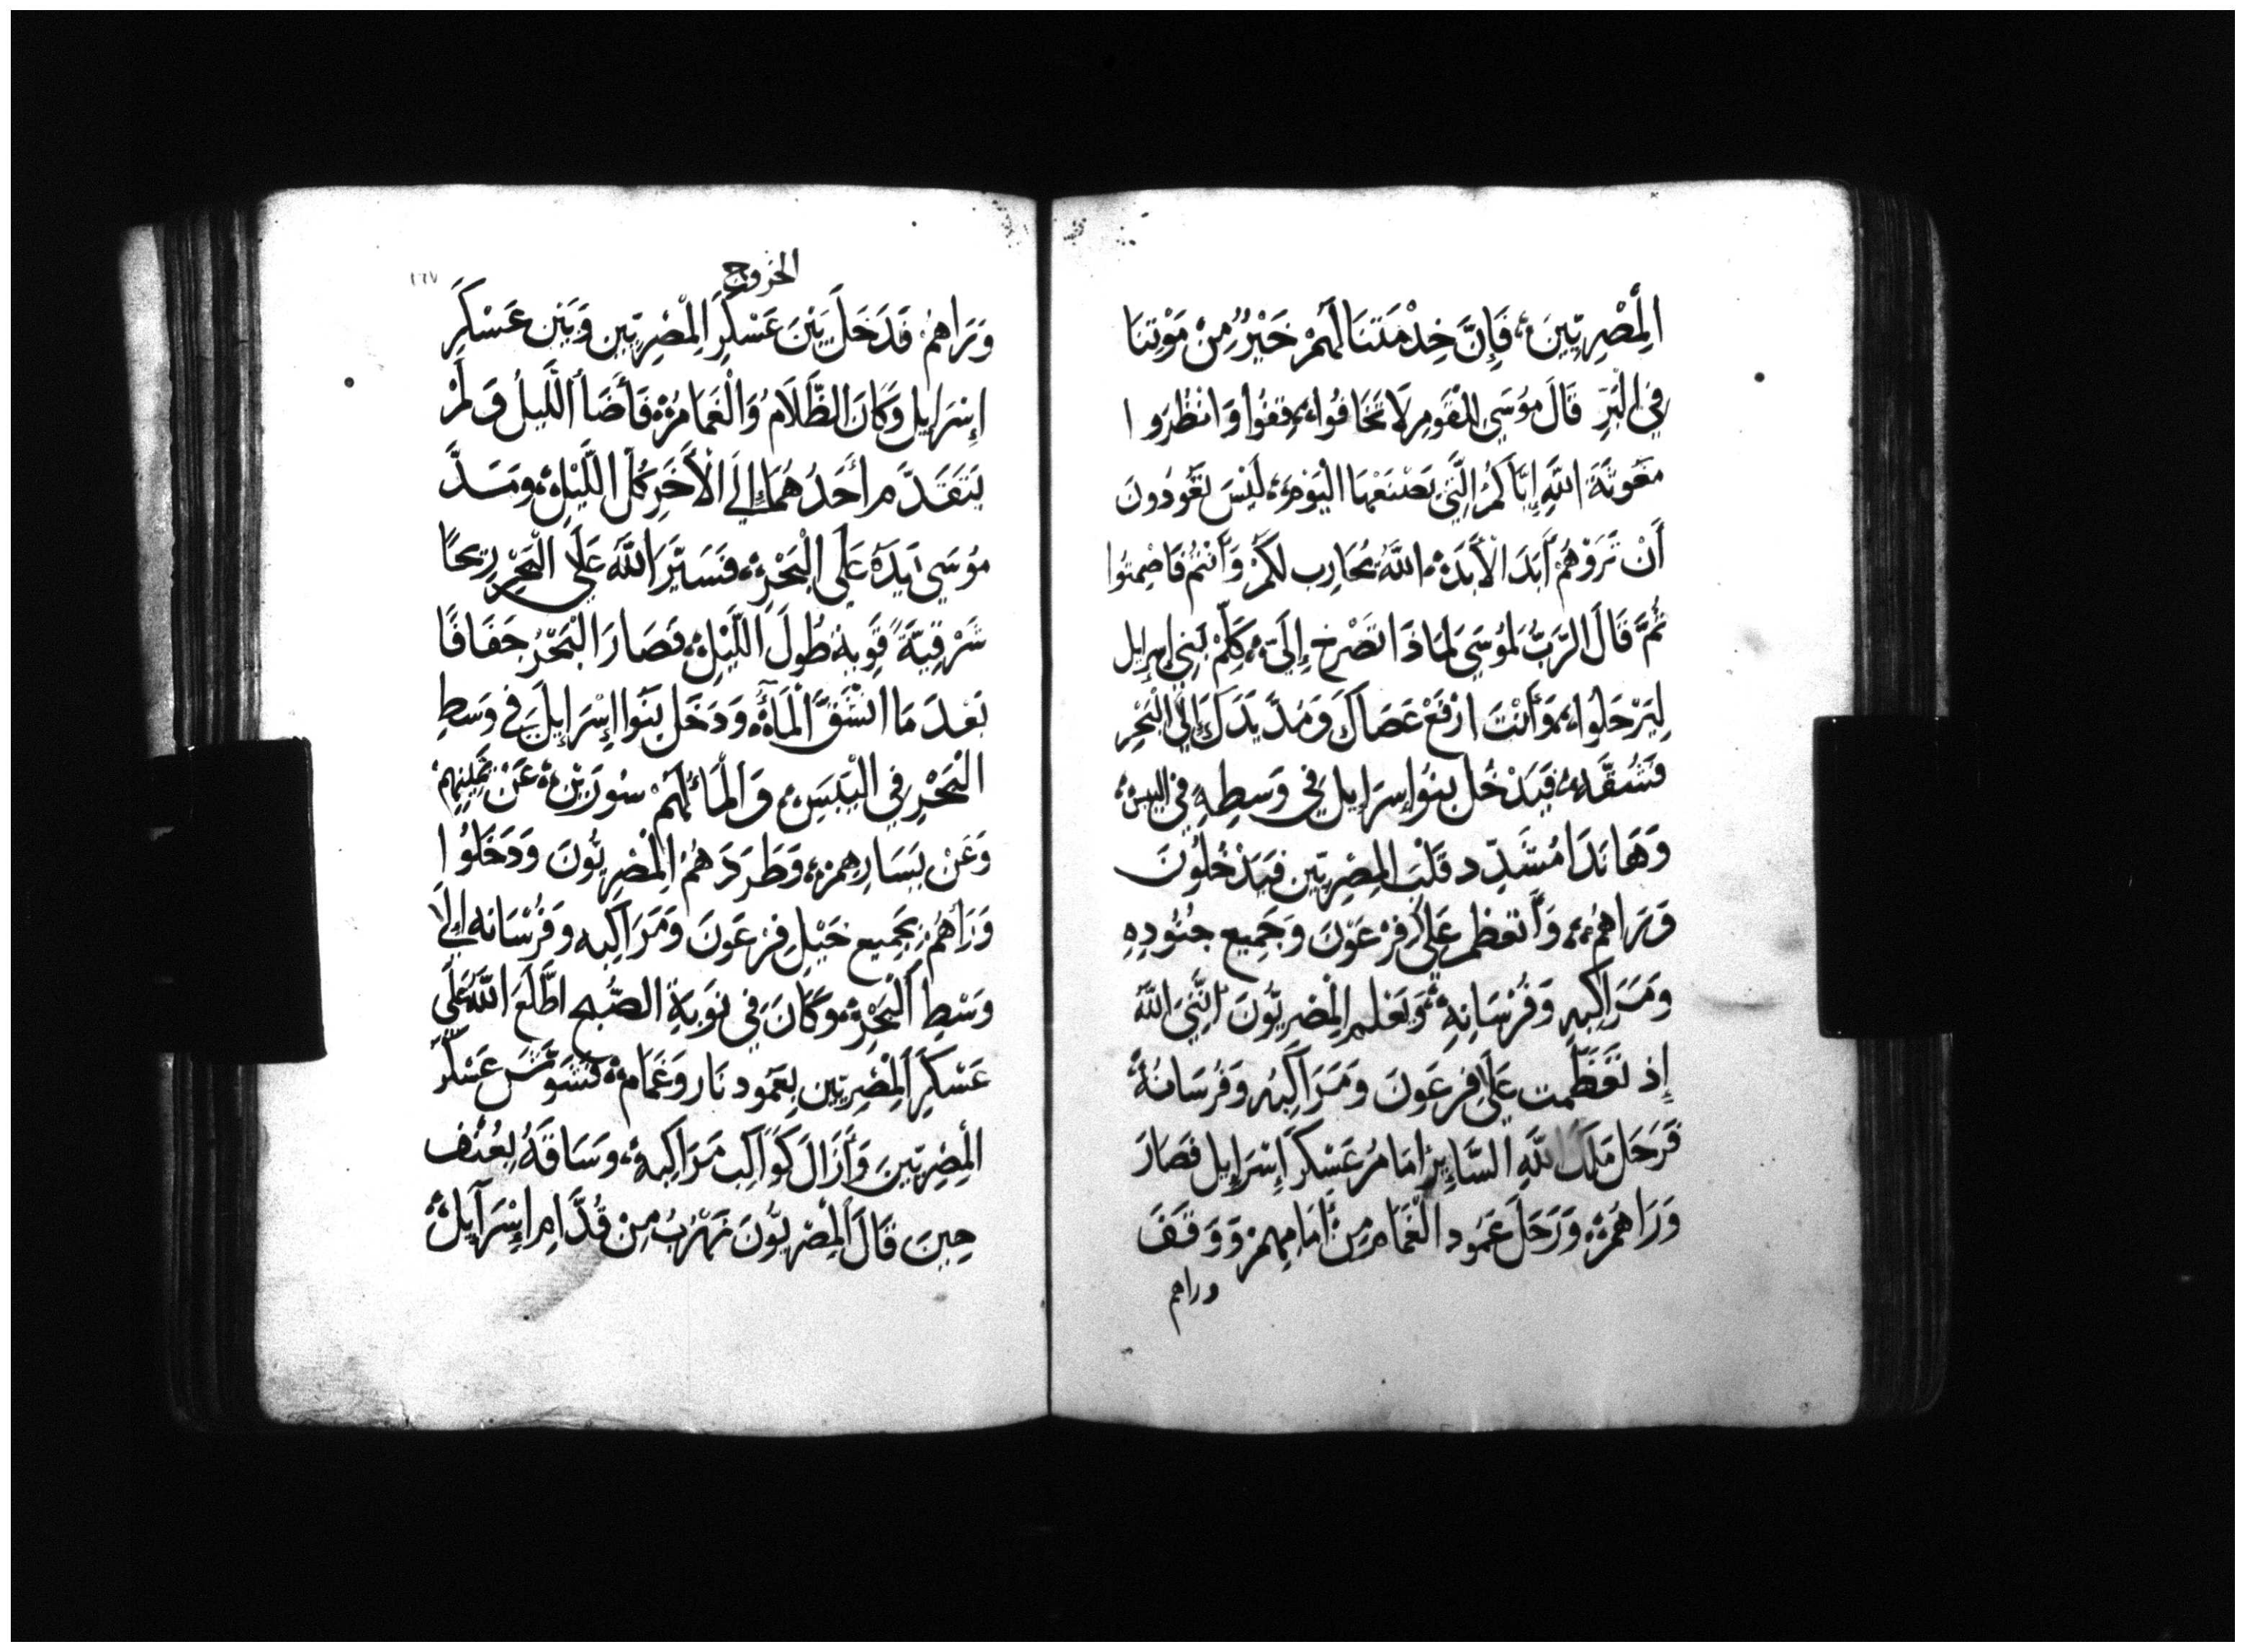 الْمِصْرِيِّينَ، فَإِنَّ خِدْمَتَنَا لَهُمْ خَيْرٌ مِنْ مَوْتِنَا
فِي الْبَرِّ قَالَ مُوسَى لِلْقَوْمِ لَا تَخَافُوا، قِفُوا وَانْظُرُوا
مَعُونَةَ اللَّهِ إِيَّاكُمُ الَّتِي يَصْنَعُهَا الْيَوْمَ، لَيْسَ تَعُودُونَ
أَنْ تَرَوْهُمْ أَبَدَ الْأَبَدِ اللَّهُ يُحَارِب لَكُمْ وَأَنْتُمْ فَاصْمِتُوا
ثُمَّ قَالَ الرَّبُّ لِمُوسَى لِمَاذَا تَصْرَخ إِلَيَّ، كَلِّمْ بَنِي إِسْرَايل
لِيَرْحَلُوا، وَأَنْتَ ارْفَعْ عَصَاكَ وَمُدَّ يَدَكَ إِلَى الْبَحْرِ
فَشُقَّهُ، فَيَدْخُل بَنُوا إِسْرَايِل فِي وَسَطِهِ فِي اليبس
وَهَا نَذَا مُشَدِّد قَلْبَ الْمِصْرِيِّين فَيَدْخُلُونَ
وَرَاهُمْ، وَأَتَعَظَّم عَلَى فِرْعَوْنَ وَجَمِيع جُنُودِهِ
وَمَرَاكِبِهِ وَفُرْسَانِهِ، وَيَعْلَم الْمِصْرِيُّونَ أَنَّنِي اللَّهُ
إِذ تَعَظَّمت عَلَى فِرعَونَ وَمَرَاكِبُه وَفُرسَانُهُ
فَرَحَلَ مَلَكُ اللَّهِ السَّايِرُ امَامُ عَسْكَرِ إِسْرَايِل فَصَارَ
وَرَاهُمْ، وَرَحَلَ عَمُود الْغَمَام مِنْ أَمَامِهِمْ وَوَقَفَ
وراهم
الخروج
١٦٧
وَرَاهُمْ، فَدَخَلَ بَيْنَ عَسْكَرِ الْمِصْرِيِّين وَبَيْن عَسْكَرِ
إِسْرَايل وَكَانَ الظَّلَامُ وَالْغَمَامُ، فَأَضَا اللَّيلُ وَلَمْ
يَتَقَدَّم أَحَدُهُمَا إِلَى الْأَخَرِ كُلَّ اللَّيْلِ، وَمَدَّ
مُوسَى يَدَهُ عَلَى الْبَحْرِ، فَسَيَّرَ اللَّهُ عَلَى الْبَحْرِ رِيحًا
شَرْقِيَّةً قَوِيةً طُولَ اللَّيْلِ، فَصَارَ الْبَحْرُ جَفَافًا
بَعْدَ مَا انْشَقَّ الْمَاءُ، وَدَخَلَ بَنُوا إِسْرَايِلَ فِي وَسَطِ
الْبَحْرِ فِي الْيَبَسِ، وَالْمَاءُ لَهُمْ سُورَيْنِ، عَنْ يَمِينِهِمْ
وَعَنْ يَسَارِهِمْ، وَطَرَدَهُمُ الْمِصْرِيُّونَ وَدَخَلُوا
وَرَاهُمْ، بِجَمِيع خَيْلِ فِرْعَوْنَ وَمَرَاكِبِه وَفُرْسَانه إِلَى
وَسْطِ الْبَحْرِ، وَكَانَ فِي نَوبَةِ الصُّبح اطَّلَعَ اللَّهُ عَلَى
عَسْكَرِ الْمِصْرِيِّين بِعَمُود نَار وَغَمَام، فَشَوَّشَ عَسْكَرَ
الْمِصْرِيِّينَ وَأَزَالَ كَوَاكِب مَرَاكِبِهِ، وَسَاقَهُ بِعُنْف
حِينَ قَالَ الْمِصْرِيُّونَ نَهْرُبُ مِنْ قُدَّامِ إِسْرَايِلَ